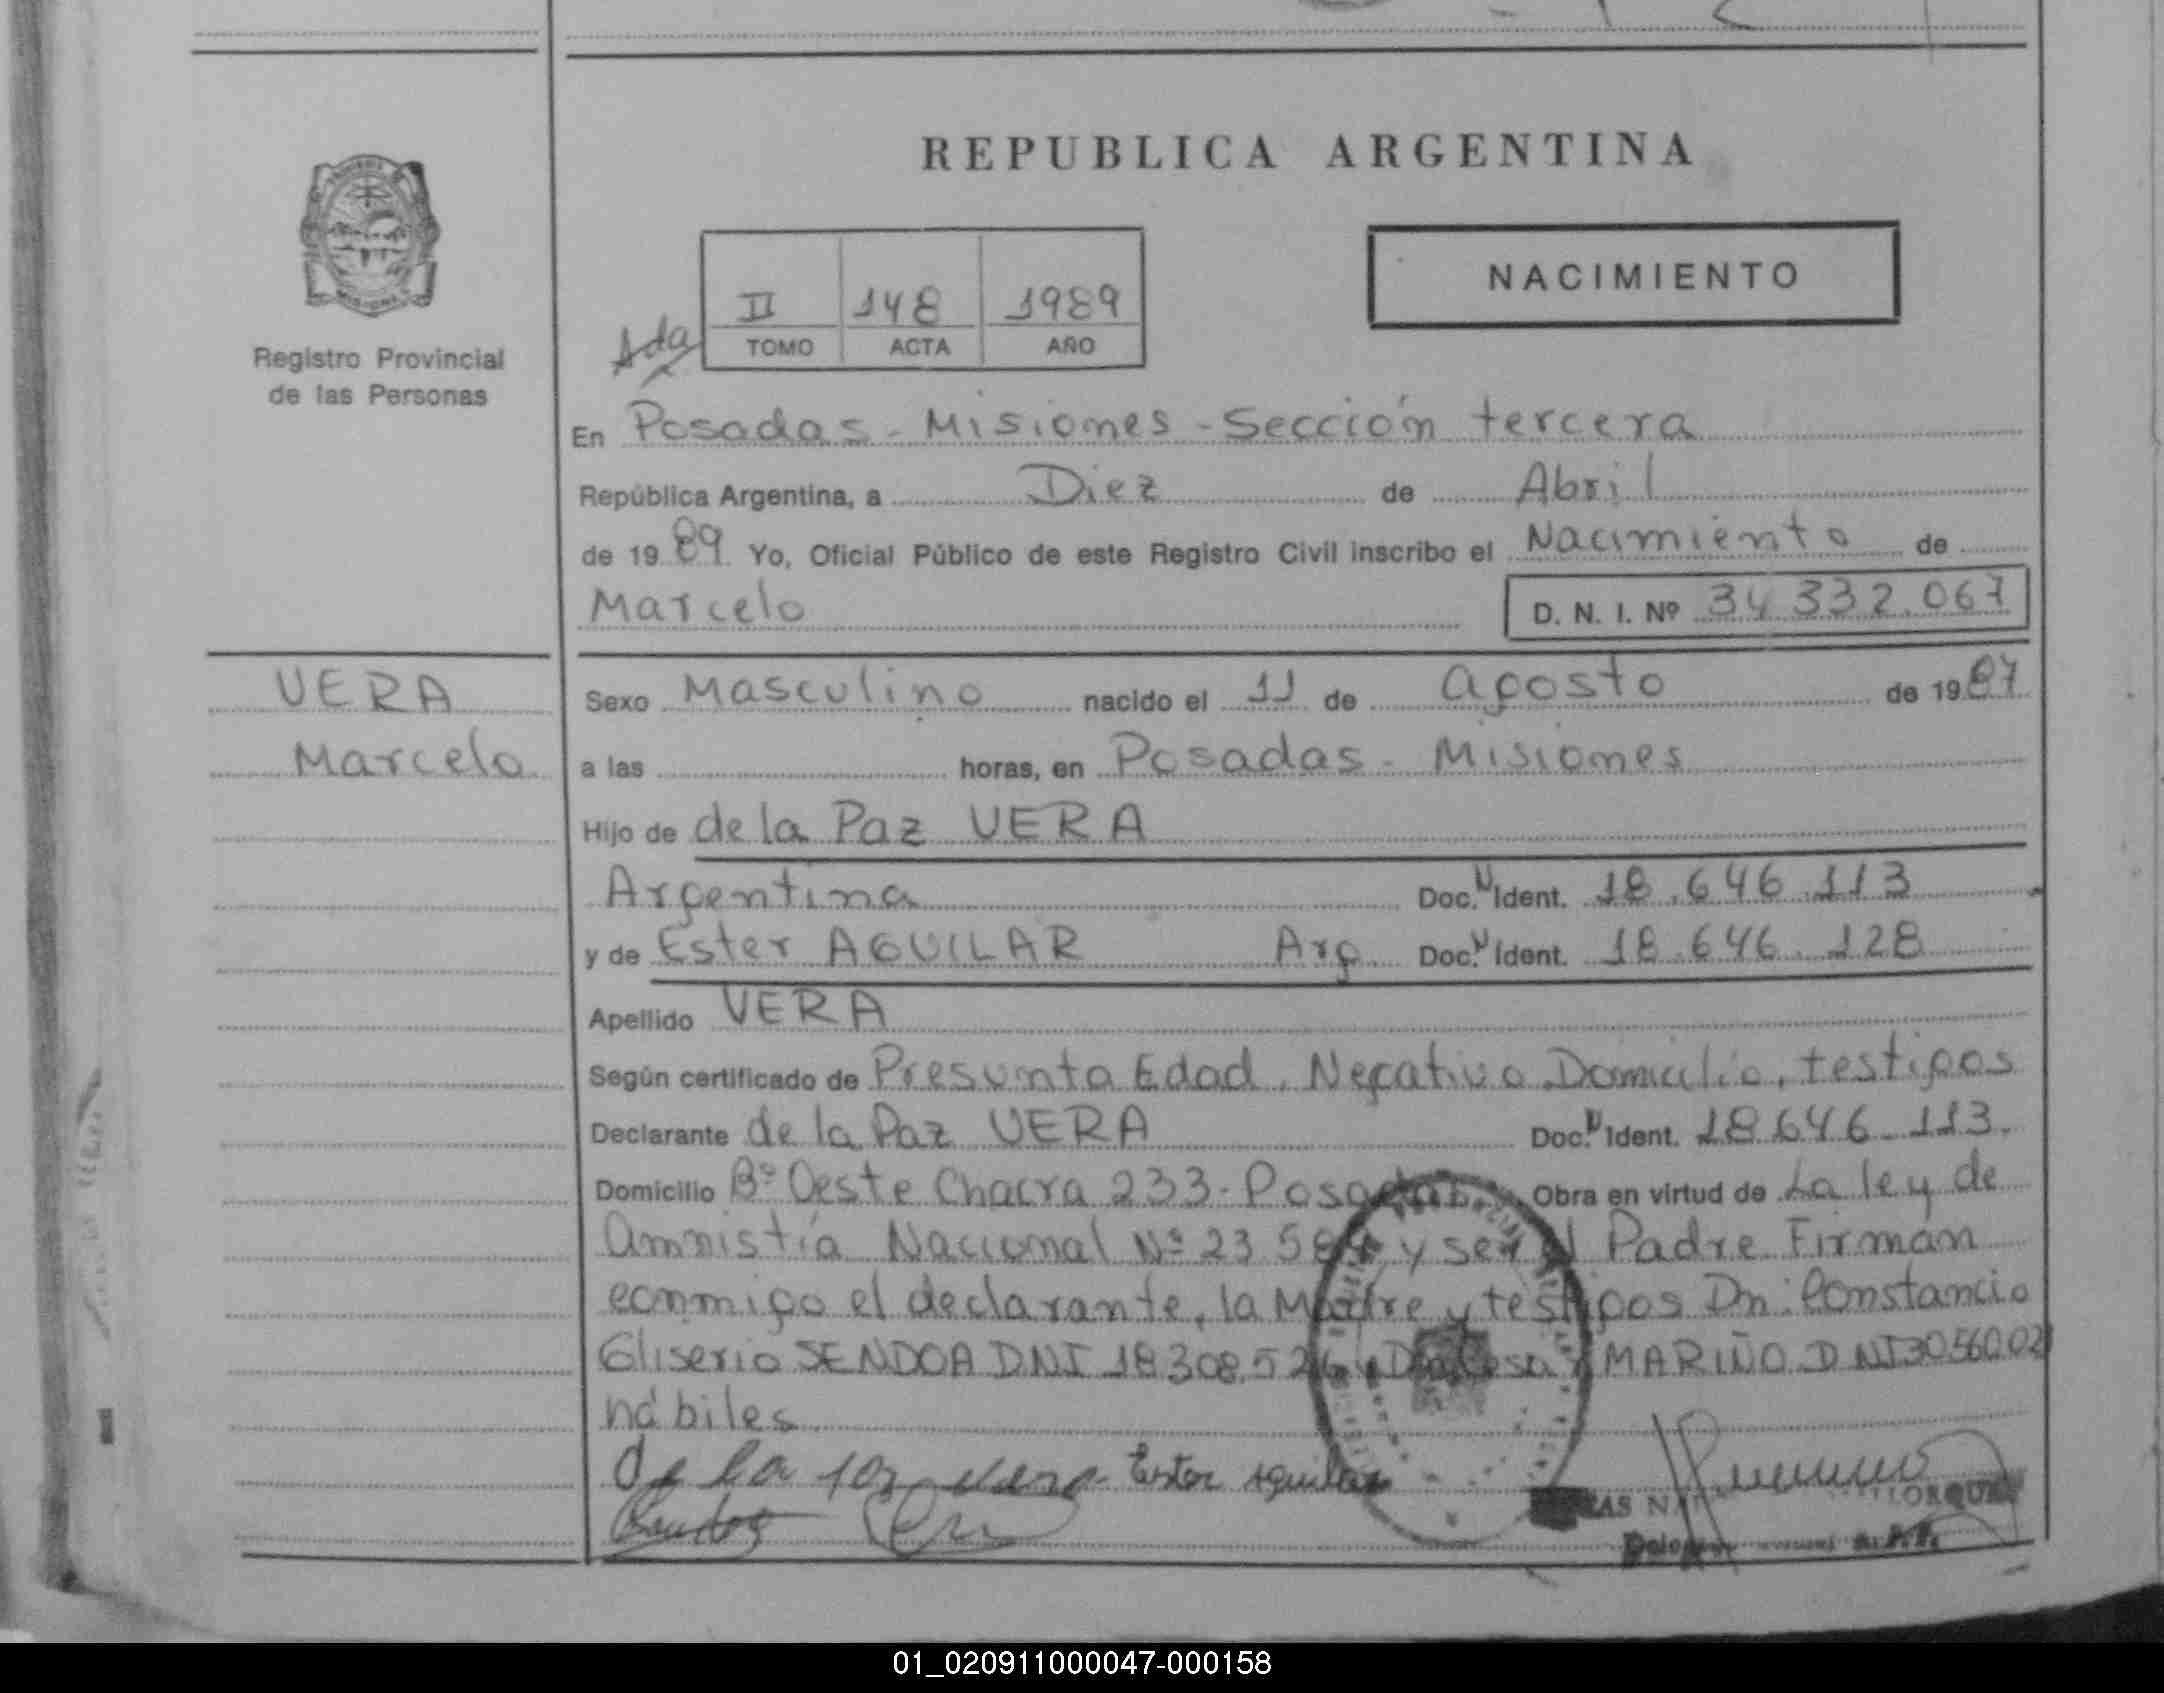 REPUBLICA ARGENTINA
NACIMIENTO
II 148 1989
TOMO ACTA AÑO
Registro Provincial
de las Personas
En Posadas - Misiones - Sección tercera
República Argentina, a Diez de Abril
de 1989 Yo, Oficial Público de este Registro Civil inscribo el Nacimiento de
Marcelo D. N. I. Nº 34 332.067
VERA
Marcelo
Sexo Masculino nacido el 11 de agosto de 1987
a las horas, en Posadas - Misiones
Hijo de de la Paz VERA
Argentina Doc. N Ident. 18.646.113
y de Ester AGUILAR Arg Doc. N Ident. 18.646.128
Apellido VERA
Según certificado de Presunta Edad, Negativo Domicilio, testigos
Declarante de la Paz VERA Doc. N Ident. 18.646.113.
Domicilio Bº Oeste Chacra 233 - Posadas Obra en virtud de La ley de
amnistía Nacional Nº 23 y ser el Padre Firmán
conmigo el declarante, la Madre y testigos Dn: Constancio
Gliserio SENDOA DNI 18308.526 y MARIÑO DNI
hábiles
de la Paz vera Ester Aguilar
01_020911000047-000158